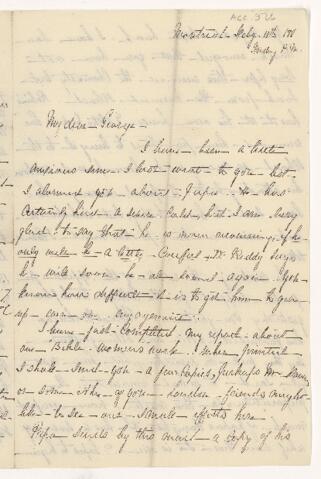 ACC 526
Montreal Feby. 18th
Friday P.M.
My dear George
I have been a little
anxious since I last wrote to you
about Papa. He has
certainly had a severe cold, but I am very
glad to say that he is now recovering, if he
only will be a little careful Dr. Reddy says
he will soon be all himself again. You
know how difficult it is to get him to give
up an engagement.
I have just completed my report about
our Bible Women's work. When printed
I should send you a few copies, perhaps
or some other of your London friends might
like to see our small efforts here.
Papa sends by this mail a copy of his